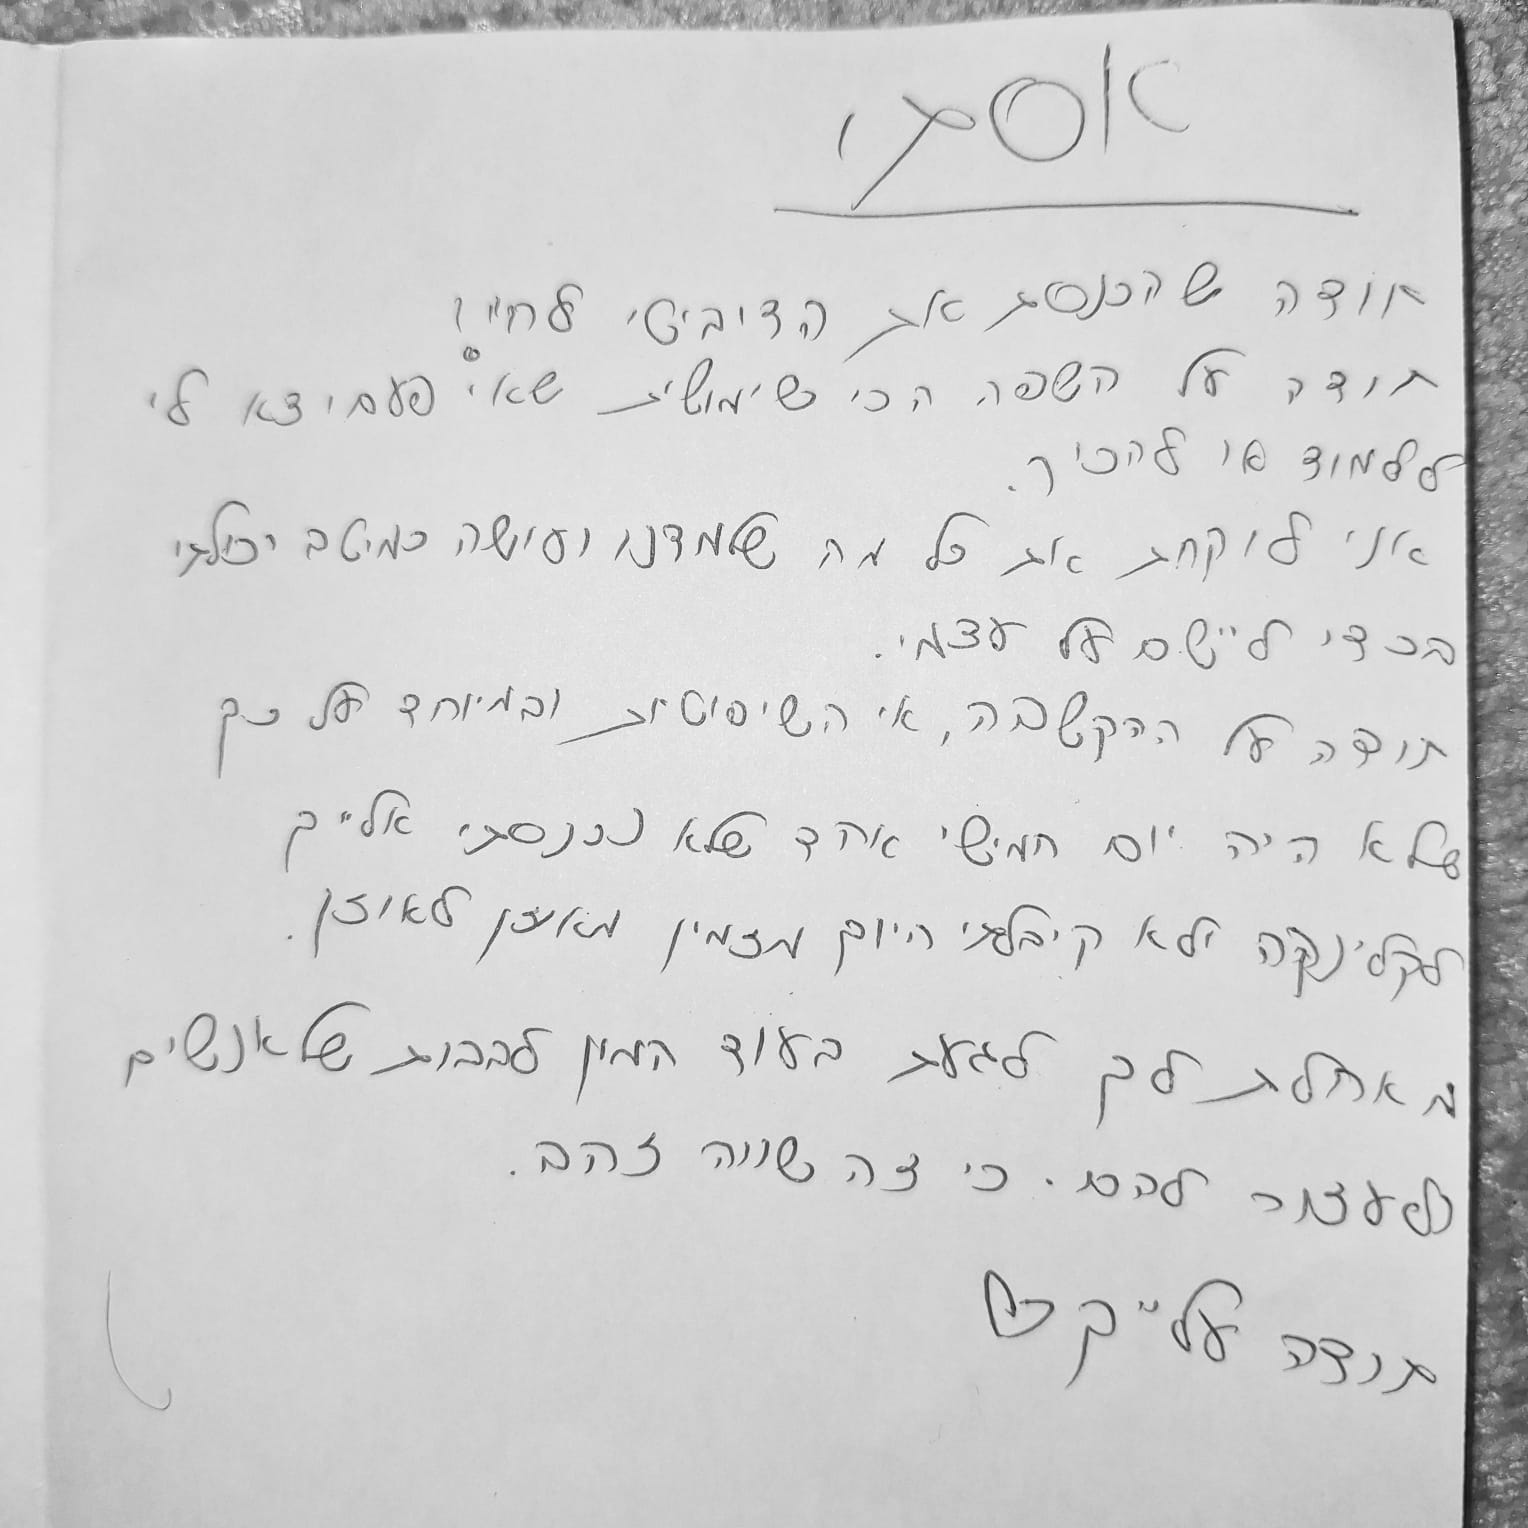 אסתי
תודה שהכנסת את הדיביטי לחיי!
תודה על השפה הכי שימושית שאי פעם יצא לי
ללמוד או להכיר.
אני לוקחת את כל מה שלמדנו ועושה כמיטב יכולתי
בכדי ליישם על עצמי.
תודה על ההקשבה, אי השיפוטיות ובמיוחד על כך
שלא היה יום חמישי אחד שלא נכנסתי אלייך
לקליניקה ולא קיבלתי חיוך מזמין מאוזן לאוזן.
מאחלת לך לגעת בעוד המון לבבות של אנשים
ולעצור להם. כי זה שווה זהב.
תודה עלייך